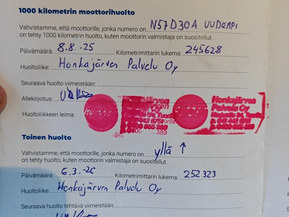 1000 kilometrin moottorihuolto
Vahvistamme, että moottorille, jonka numero on, N57D30A UUDEMPI
on tehty 1000 kilometrin huolto, kuten moottorin valmistaja on suositellut.
Päivämäärä: 8.8.-25 Kilometrimittarin lukema: 245628
Huoltoliike: Honkajärven Palvelu Oy
Seuraava huolto viimeistään:
Allekirjoitus:
Huoltoliikkeen leima:
Honkajärven
Palvelu Oy
Toinen huolto
Vahvistamme, että moottorille, jonka numero on, yllä ↑
on tehty huolto, kuten moottorin valmistaja on suositellut.
Päivämäärä: 6.3.-26 Kilometrimittarin lukema: 252323
Huoltoliike: Honkajärven Palvelu Oy
Seuraava huolto tehtävä viimeistään: